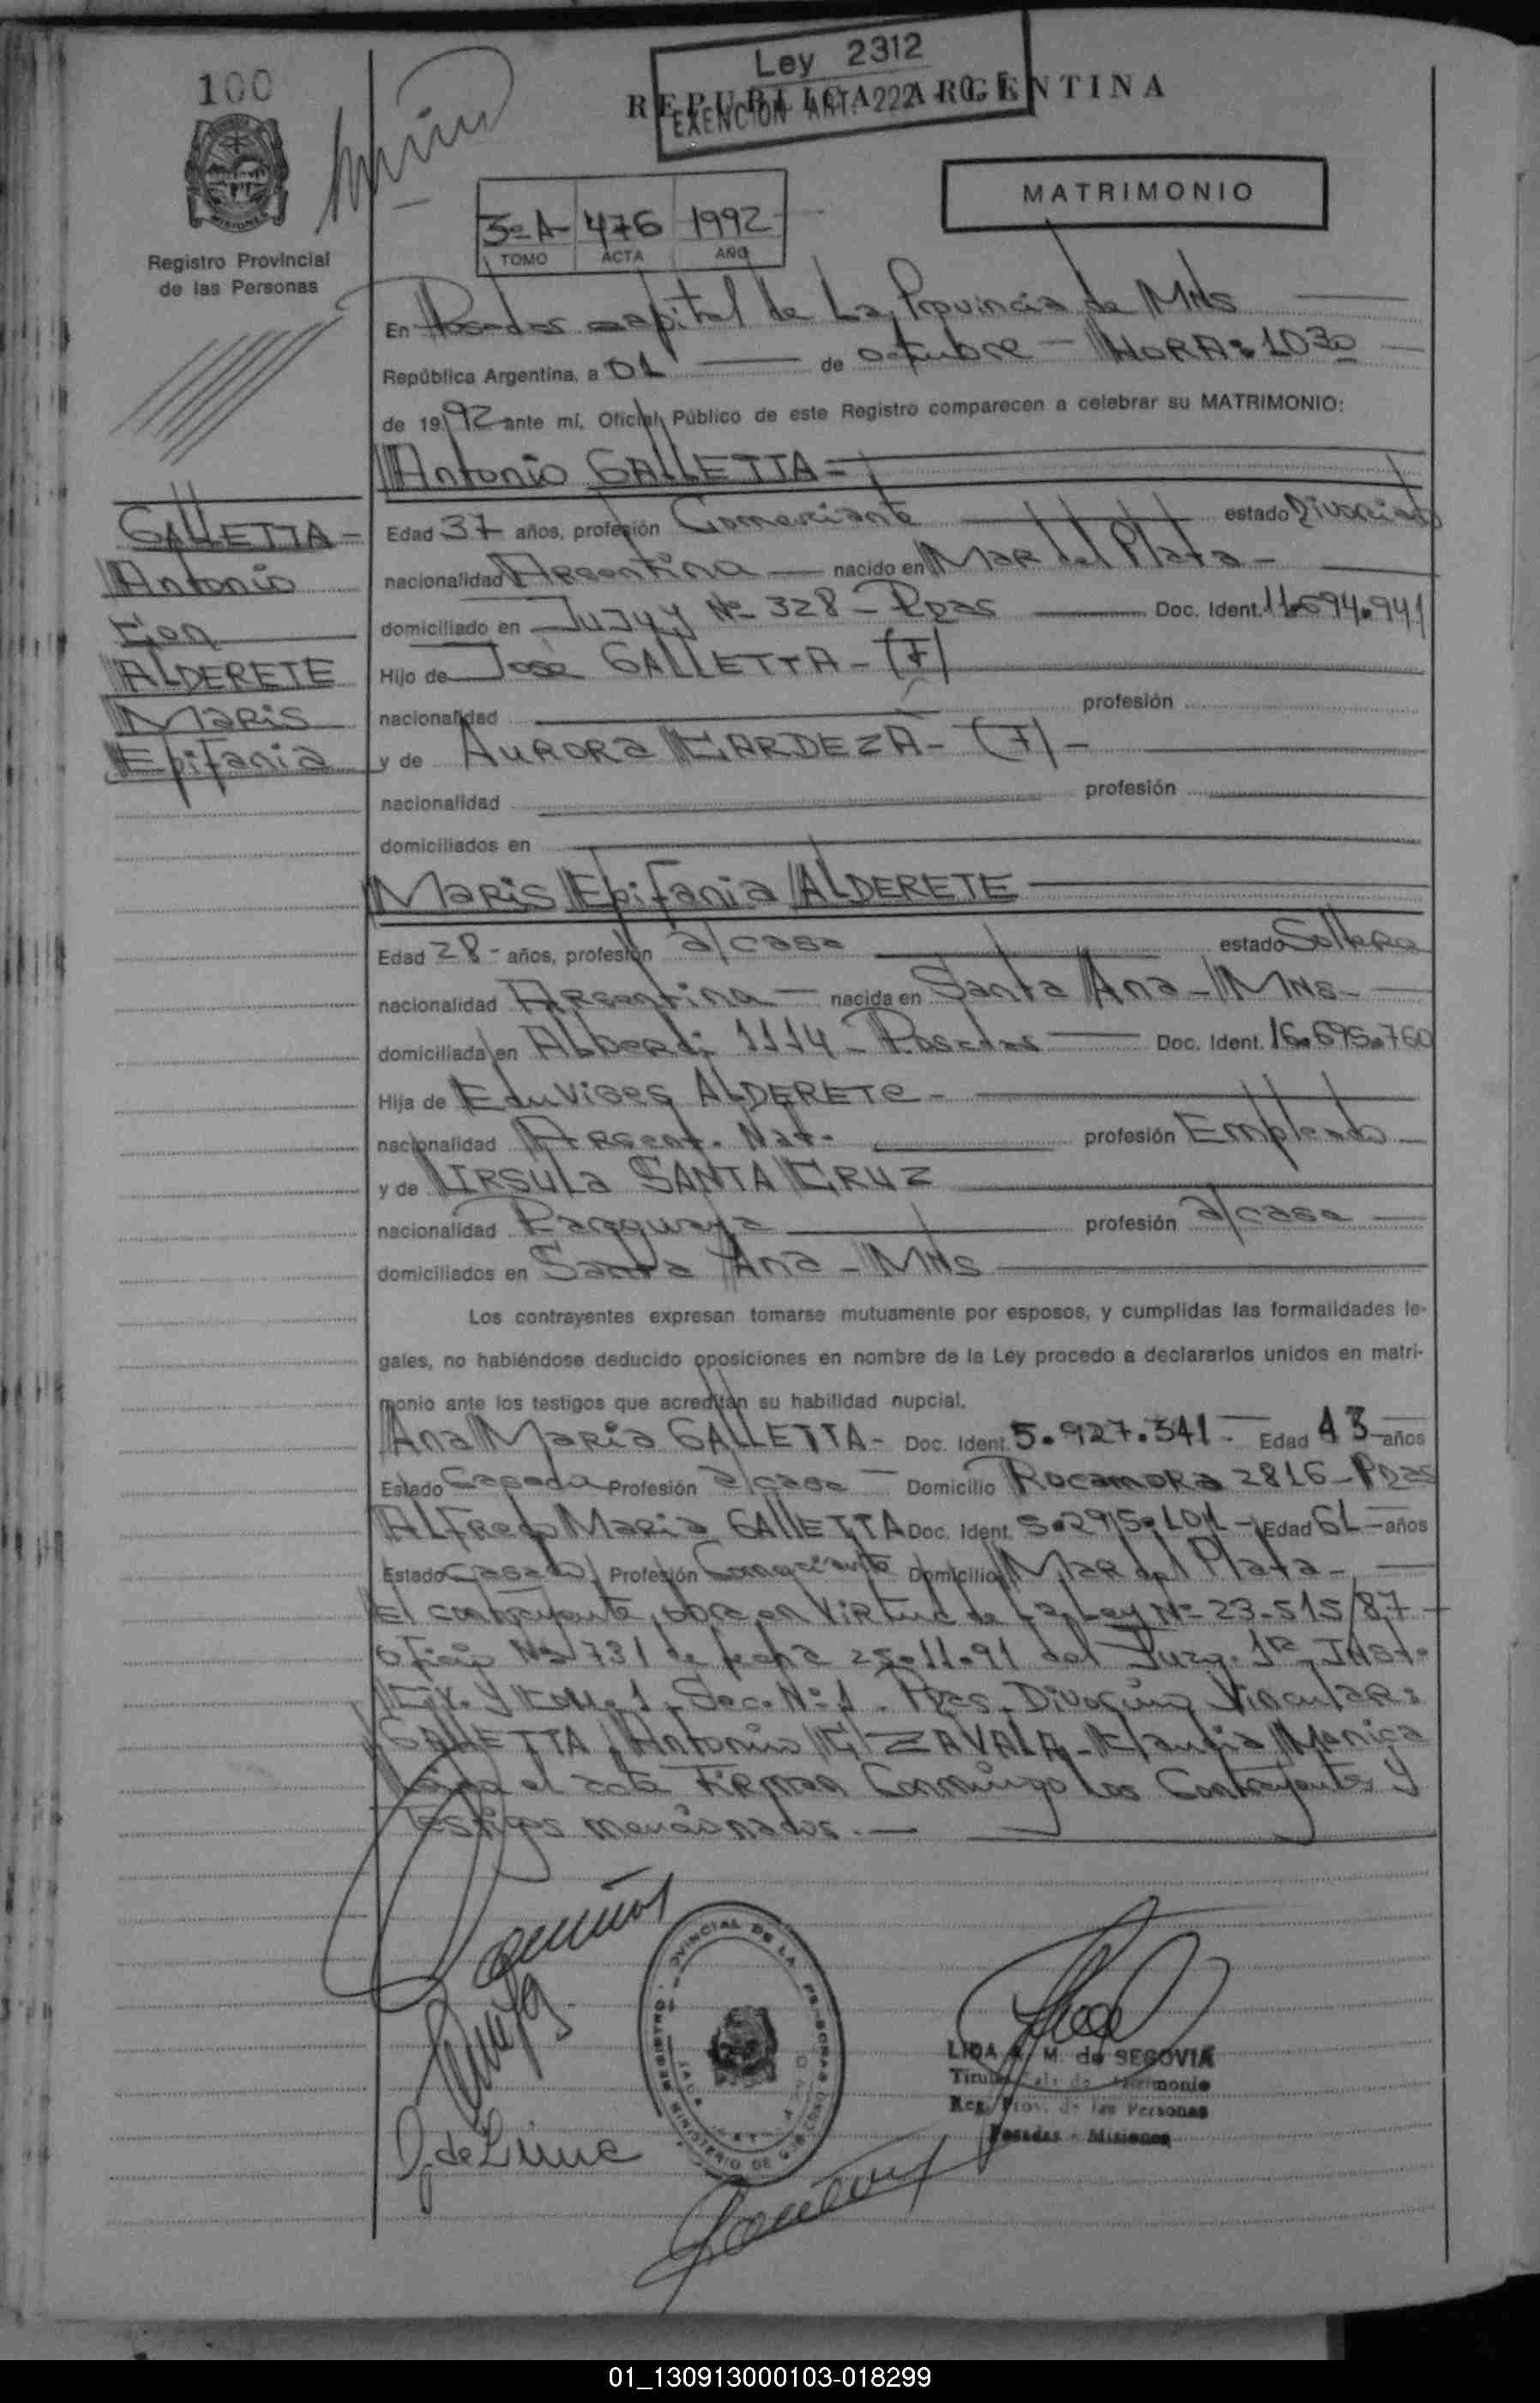 100
Ley 2312
EXENCION ART. 222
REPUBLICA ARGENTINA
MATRIMONIO
3º A- 476 1992
TOMO ACTA AÑO
Registro Provincial
de las Personas
En Posadas capital de La Provincia de MNS
República Argentina, a 01 de octubre - HORA: 1030
de 1992 ante mí, Oficial Público de este Registro comparecen a celebrar su MATRIMONIO:
Antonio GALLETTA =
GALLETTA -
Antonio
Con
ALDERETE
Maris
Epifania
Edad 37 años, profesión Comerciante estado Divorciado
nacionalidad Argentina nacido en Mar del Plata -
domiciliado en Jujuy Nº 328 - Pdas Doc. Ident. 11.694.941
Hijo de José GALLETTA - (F)
nacionalidad profesión
y de AURORA CARDEZA - (F) -
nacionalidad profesión
domiciliados en
Maris Epifania ALDERETE
Edad 28 - años, profesión a/casa estado Soltera
nacionalidad Argentina nacida en Santa Ana - MNS -
domiciliada en Alberdi 1114 - Posadas Doc. Ident. 16.695.760
Hija de Eduviges ALDERETE -
nacionalidad Argent. Nat. profesión Empleado
y de URSULA SANTA CRUZ
nacionalidad Paraguaya profesión a/casa
domiciliados en Santa Ana - MNS
Los contrayentes expresan tomarse mutuamente por esposos, y cumplidas las formalidades le-
gales, no habiéndose deducido oposiciones en nombre de la Ley procedo a declararlos unidos en matri-
monio ante los testigos que acreditan su habilidad nupcial.
Ana Maria GALLETTA - Doc. Ident. 5.927.341 - Edad 43 años
Estado Casada Profesión a/casa Domicilio Rocamora 2816 - Pdas
Alfredo Maria GALLETTA Doc. Ident. 5.295.101 - Edad 61 - años
Estado Casado Profesión Comerciante Domicilio Mar del Plata -
El contrayente, obra en virtud de la Ley Nº 23.515/87 -
Oficio Nº 731 de fecha 25.11.91 del Juzg. 1ra Inst.
Civ. y Com. 1 - Sec. Nº 1 - Pdas - Divorcio Vincular:
GALLETTA, Antonio C/ ZAVALA - Claudia Monica
el acta Firman Conmigo los Contrayentes y
Testigos mencionados. -
LIDA M. de SEGOVIA
Reg. Prov. de las Personas
Posadas - Misiones
01_130913000103-018299